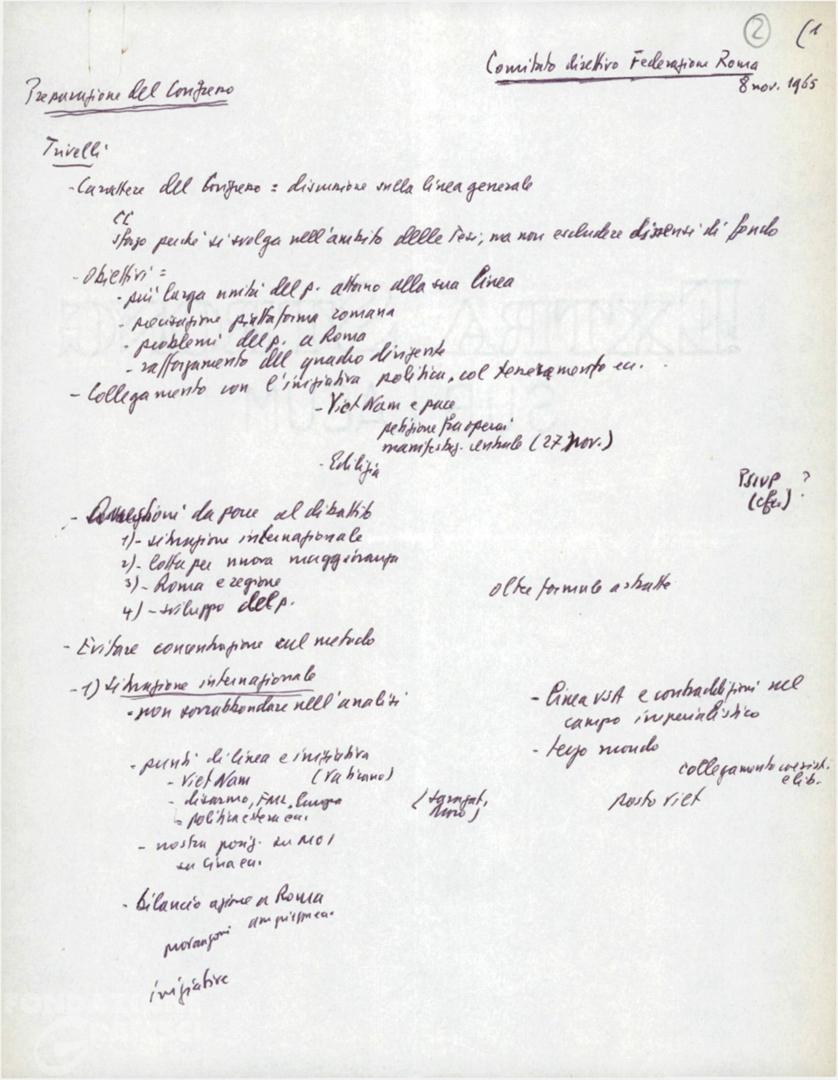 2 (1
Comitato direttivo Federazione Roma
8 nov. 1965
Preparazione del Congresso
Trivelli
- Carattere del Congresso = discussione sulla linea generale
CC
sforzo perché si svolga nell'ambito delle Tesi, ma non escludere dissensi di fondo
- Obiettivi =
- più larga unità del p. attorno alla sua linea
- precisazione piattaforma romana
- problemi del p. a Roma
- rafforzamento del quadro dirigente
- Collegamento con l'iniziativa politica, col tesseramento ecc.
- Viet Nam e pace
petizione fra operai
manifestaz. centrale (27 nov.)
- Edilizia
PSIUP ?
(cfr.)
- Questioni da porre al dibattito
1) - situazione internazionale
2) - lotta per nuova maggioranza
3) - Roma e regione
4) - sviluppo del p.
oltre formule astratte
- Evitare concentrazione sul metodo
- 1) situazione internazionale
- non sovrabbondare nell'analisi
- linea USA e contraddizioni nel
campo imperialistico
- terzo mondo
collegamento coesist.
e lib.
posto Viet
- punti di linea e iniziativa
- Viet Nam (Vaticano)
- disarmo, FML, Europa
- politica estera ecc.
(Saragat,
Moro)
- nostra posiz. su MOI
su Cina ecc.
- bilancio azione a Roma
iniziative